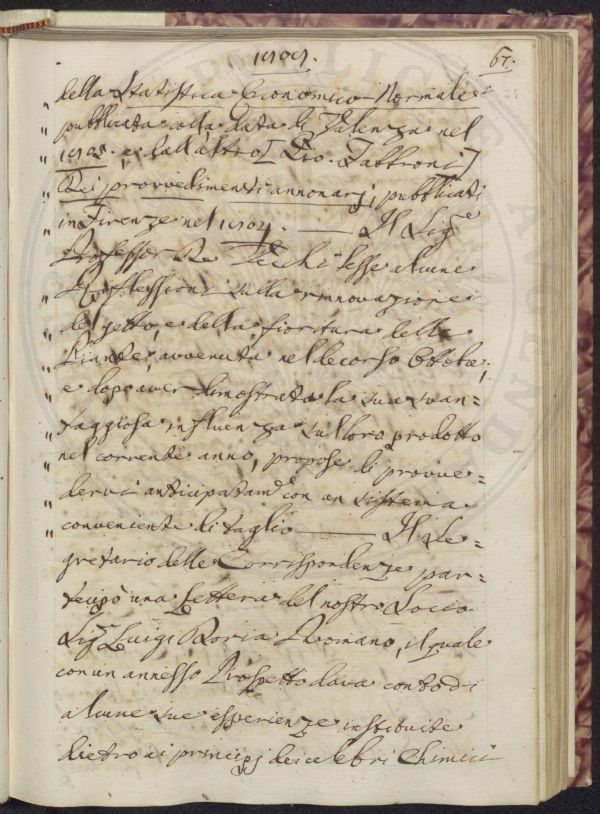 1805. 67.
„ della Statistica Economico-Normale
„ pubblicata colla data di Valenza nel
„ e dall'altro [Gio. Fabbroni]
„ Dei provvedimenti annonarj, pubblicati
„ in Firenze nel 1804. —— Il Sig.r
„ Professor De Vecchi lesse alcune
„ Riflessioni sulla rinnovazione
„ de' getti, e della fioritura delle
„ Piante, avvenuta nel decorso Ottobre;
„ e dopo aver dimostrata la sua svan=
„ taggiosa influenza sul loro prodotto
„ nel corrente anno, propose di provve=
„ dervi anticipatam.te con un sistema
„ conveniente di taglio —— Il Se=
gretario delle Corrispondenze par=
tecipò una Lettera del nostro Socio
Sig.r Luigi Doria Romano, il quale
con un annesso Prospetto dava conto di
alcune sue esperienze instituite
dietro ai principj dei celebri Chimici